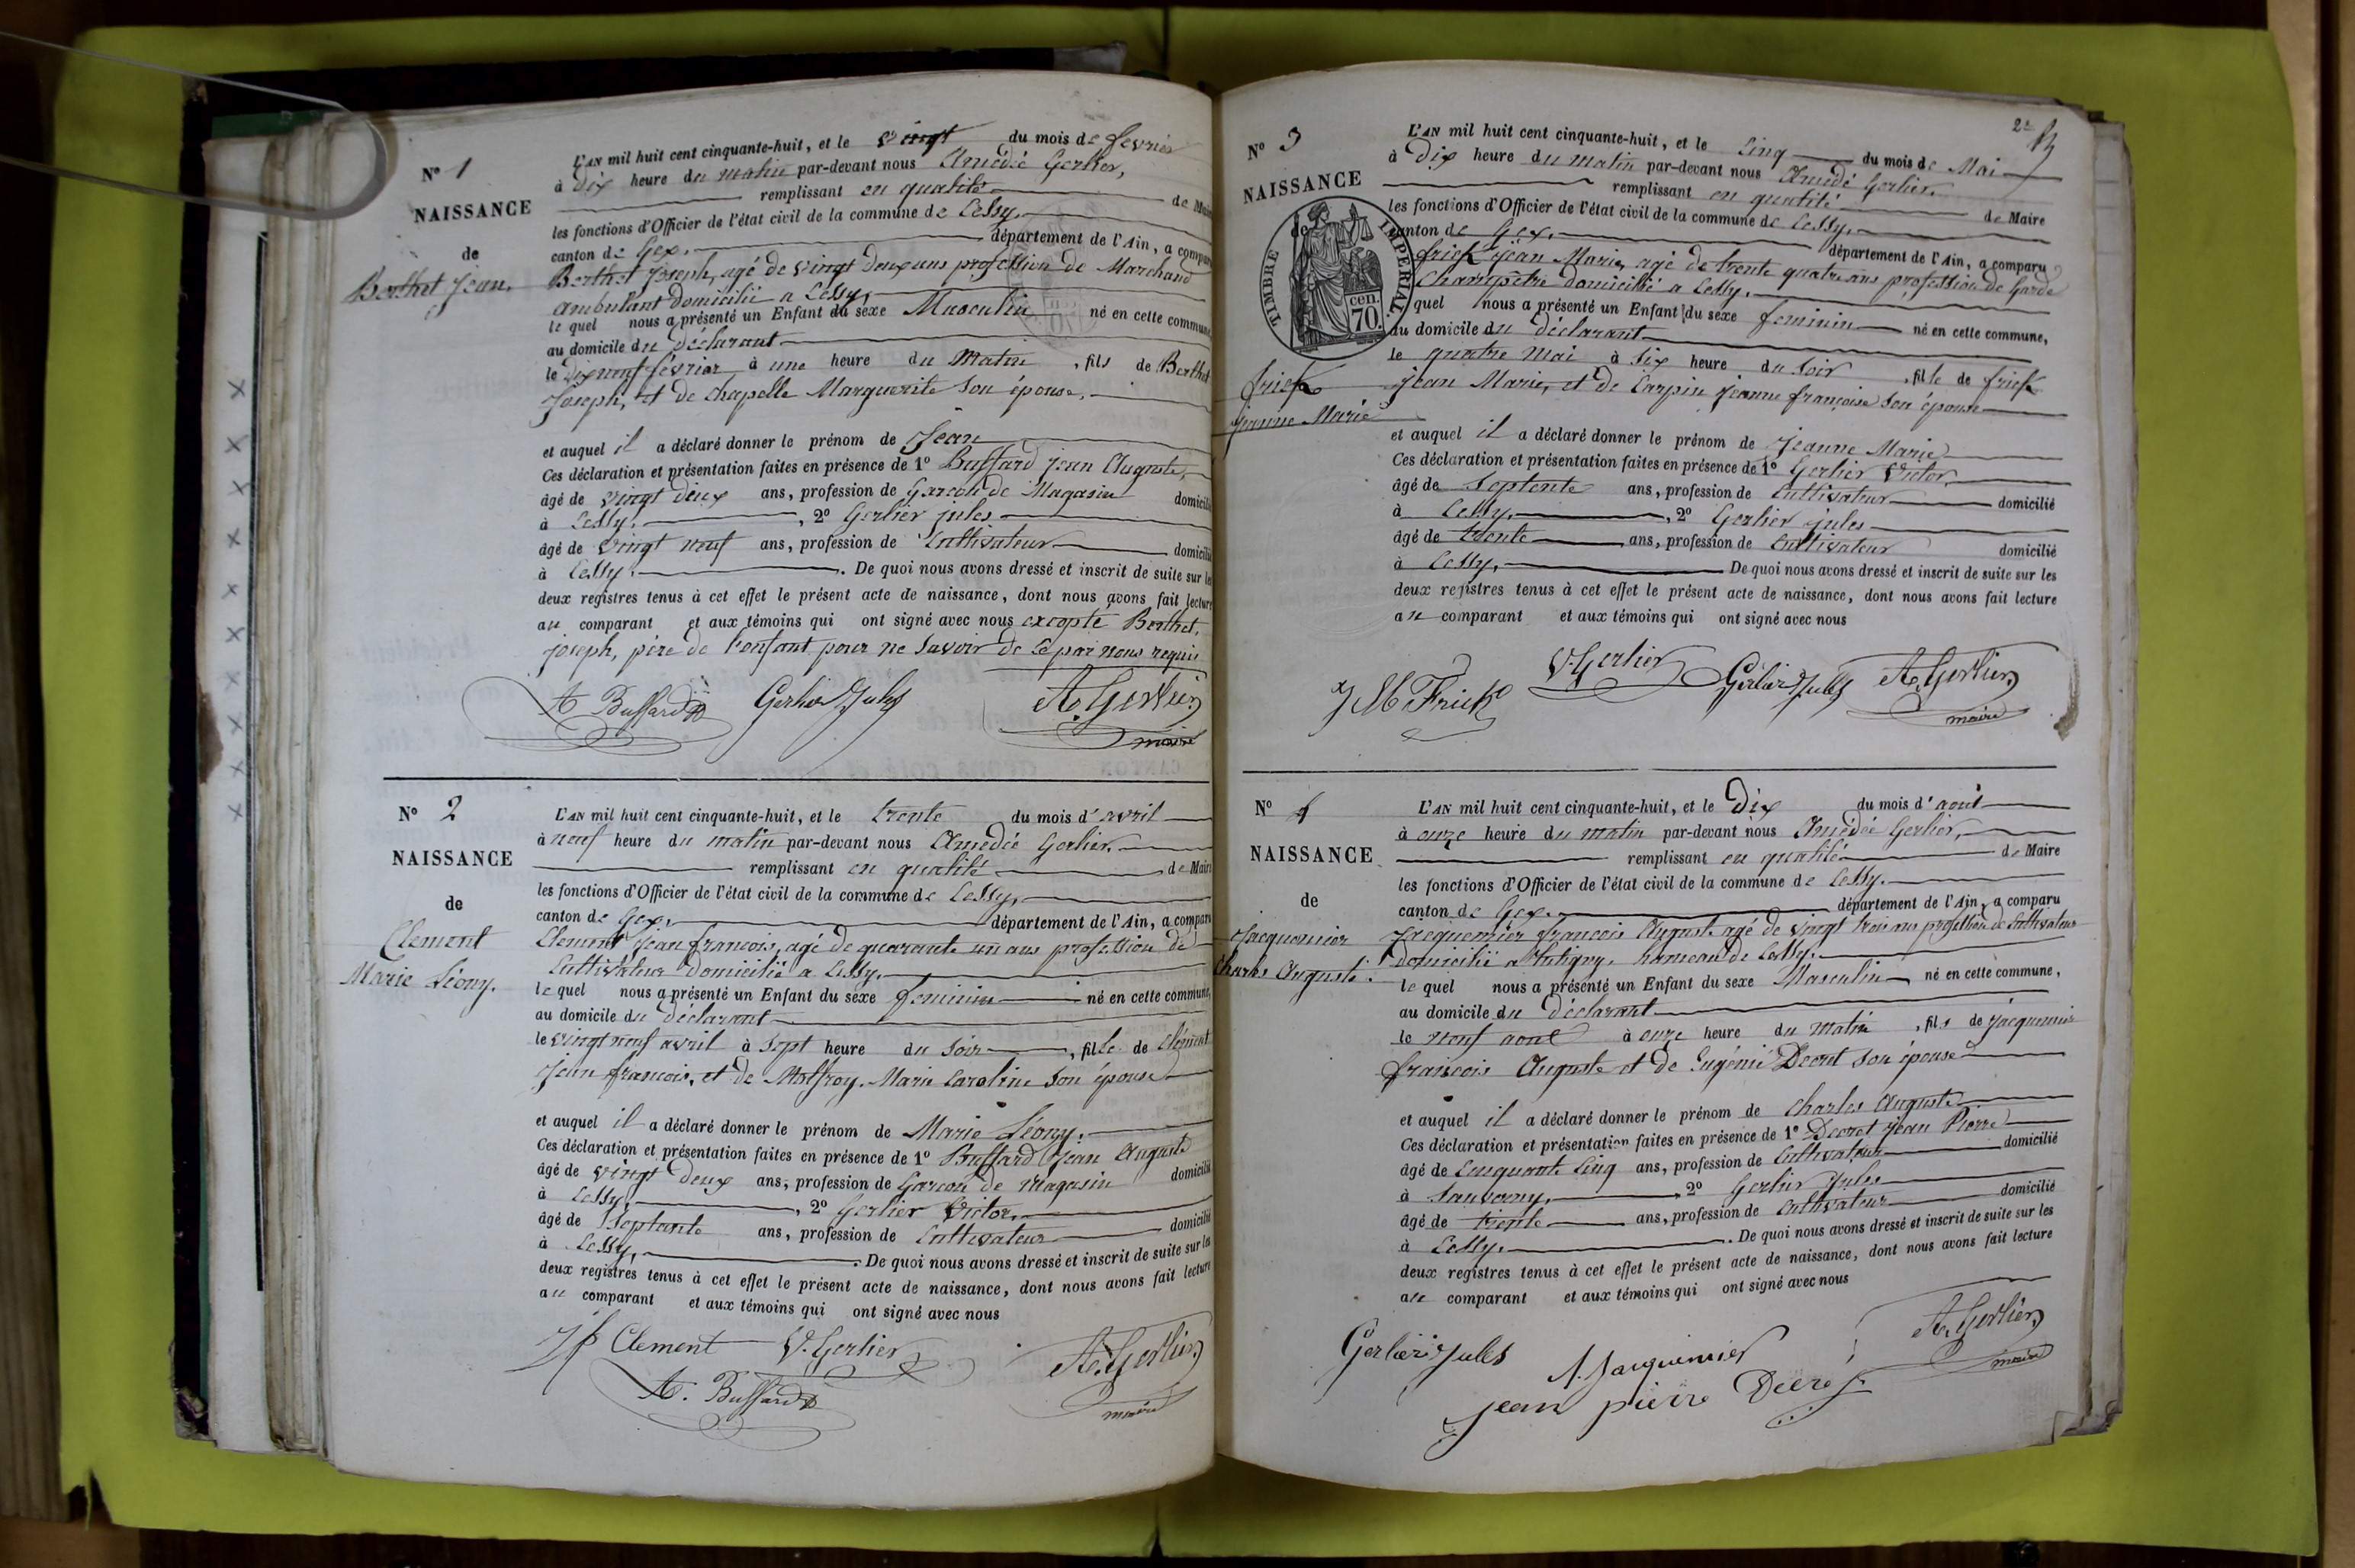 N° 1
NAISSANCE
de
Berthet Jean.
L'AN mil huit cent cinquante-huit, et le vingt du mois de fevrier
à Dix heure du matin par-devant nous Amédée Gerlier,
remplissant en qualité de Maire
les fonctions d'Officier de l'état civil de la commune de Cessy,
canton de Gex, département de l'Ain, a comparu
Berthet Joseph, agé de vingt deux ans profession de Marchand
ambulant domicilié a Cessy,
le quel nous a présenté un Enfant du sexe Masculin né en cette commune
au domicile du Déclarant
le Dix neuf février à une heure du matin, fils de Berthet
Joseph, et de Chapelle Marguerite son épouse,
et auquel il a déclaré donner le prénom de Jean
Ces déclaration et présentation faites en présence de 1° Buffard jean Auguste,
âgé de vingt deux ans, profession de Garcon de Magasin domicilié
à Cessy, , 2° Gerlier jules
âgé de vingt neuf ans, profession de Cultivateur domicilié
à Cessy. . De quoi nous avons dressé et inscrit de suite sur les
deux registres tenus à cet effet le présent acte de naissance, dont nous avons fait lecture
au comparant et aux témoins qui ont signé avec nous excepté Berthet,
joseph, père de l'enfant pour ne savoir de ce par nous requis
A Buffard Gerlier Jules A. Gerlier
maire
N° 2
NAISSANCE
de
Clement
Marie Léony.
L'AN mil huit cent cinquante-huit, et le trente du mois d'avril
à neuf heure du matin par-devant nous Amédée Gerlier,
remplissant en qualité de Maire
les fonctions d'Officier de l'état civil de la commune de Cessy,
canton de Gex, département de l'Ain, a comparu
Clement Jean francois, agé de quarante un ans profession de
Cultivateur domicilié a Cessy,
le quel nous a présenté un Enfant du sexe feminin né en cette commune,
au domicile du Déclarant
le vingt neuf avril à sept heure du soir, fille de Clément
Jean francois, et de Marie Caroline son épouse
et auquel il a déclaré donner le prénom de Marie Léony.
Ces déclaration et présentation faites en présence de 1° Buffard Jean Auguste
âgé de vingt deux ans, profession de Garcon de Magasin domicilié
à Cessy, , 2° Gerlier Victor,
âgé de Septante ans, profession de Cultivateur domicilié
à Cessy, . De quoi nous avons dressé et inscrit de suite sur les
deux registres tenus à cet effet le présent acte de naissance, dont nous avons fait lecture
au comparant et aux témoins qui ont signé avec nous
Jf Clement V. Gerlier A. Gerlier
A. Buffard maire
2e
N° 3
NAISSANCE
de
TIMBRE IMPERIAL.
cen.
70.
frick
Jeanne Marie
L'AN mil huit cent cinquante-huit, et le Cinq du mois de Mai
à Dix heure du matin par-devant nous Amédé Gerlier,
remplissant en qualité de Maire
les fonctions d'Officier de l'état civil de la commune de Cessy,
canton de Gex, département de l'Ain, a comparu
frick Jean Marie, agé de trente quatre ans profession de Garde
Champêtre domicilié a Cessy,
quel nous a présenté un Enfant du sexe feminin né en cette commune,
au domicile du déclarant
le quatre Mai à Six heure du soir, fille de frick
jean Marie, et de Carpin jeanne françoise son épouse
et auquel il a déclaré donner le prénom de Jeanne Marie
Ces déclaration et présentation faites en présence de 1° Gerlier Victor,
âgé de Septente ans, profession de Cultivateur domicilié
à Cessy, , 2° Gerlier jules
âgé de trente ans, profession de Cultivateur domicilié
à Cessy, De quoi nous avons dressé et inscrit de suite sur les
deux registres tenus à cet effet le présent acte de naissance, dont nous avons fait lecture
au comparant et aux témoins qui ont signé avec nous
J M Frick V. Gerlier Gerlier Jules A. Gerlier
maire
N° 4
NAISSANCE
de
Jacquemier
Charles Auguste.
L'AN mil huit cent cinquante-huit, et le Dix du mois d'août
à onze heure du matin par-devant nous Amédée Gerlier,
remplissant en qualité de Maire
les fonctions d'Officier de l'état civil de la commune de Cessy.
canton de Gex. département de l'Ain, a comparu
Jacquemier francois Auguste agé de vingt trois ans profession de Cultivateur
domicilié a hameau de Cessy.
le quel nous a présenté un Enfant du sexe Masculin né en cette commune,
au domicile du Déclarant
le neuf aout à onze heure du matin, fils de Jacquemier
francois Auguste et de Eugénie Decret son épouse
et auquel il a déclaré donner le prénom de Charles Auguste
Ces déclaration et présentation faites en présence de 1° Decret Jean Pierre
âgé de Cinquante Cinq ans, profession de Cultivateur domicilié
à Sauverny, , 2° Gerlier Jules
âgé de trente ans, profession de Cultivateur domicilié
à Cessy. . De quoi nous avons dressé et inscrit de suite sur les
deux registres tenus à cet effet le présent acte de naissance, dont nous avons fait lecture
au comparant et aux témoins qui ont signé avec nous
Gerlier Jules A. Jacquemier A. Gerlier
jean pierre Decré maire